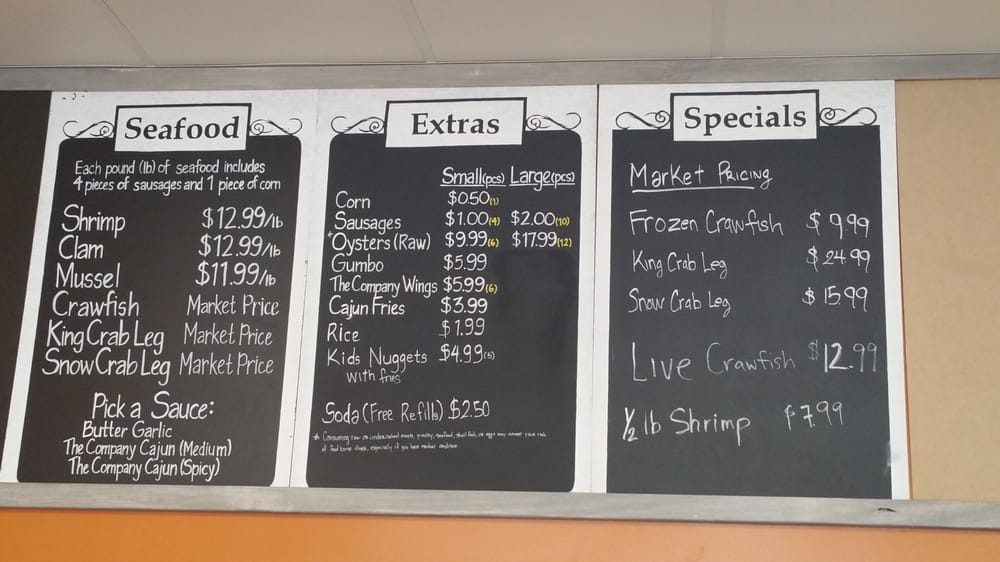 Seafood
Each pound (lb) of seafood includes
4 pieces of sausages and 1 piece of corn
Shrimp $12.99/lb
Clam $12.99/lb
Mussel $11.99/lb
Crawfish Market Price
King Crab Leg Market Price
Snow Crab Leg Market Price
Pick a Sauce:
Butter Garlic
The Company Cajun (Medium)
The Company Cajun (Spicy)
Extras
Small(pcs) Large(pcs)
Corn $0.50(1)
Sausages $1.00(4) $2.00(10)
*Oysters (Raw) $9.99(6) $17.99(12)
Gumbo $5.99
The Company Wings $5.99(6)
Cajun Fries $3.99
Rice $1.99
Kids Nuggets $4.99(5)
with fries
Soda (Free Refills) $2.50
* Consuming raw or undercooked meats, poultry, seafood, shellfish, or eggs may increase your risk
of food borne illness, especially if you have medical conditions.
Specials
Market Pricing
Frozen Crawfish $9.99
King Crab Leg $24.99
Snow Crab Leg $15.99
Live Crawfish $12.99
1/2 lb Shrimp $7.99